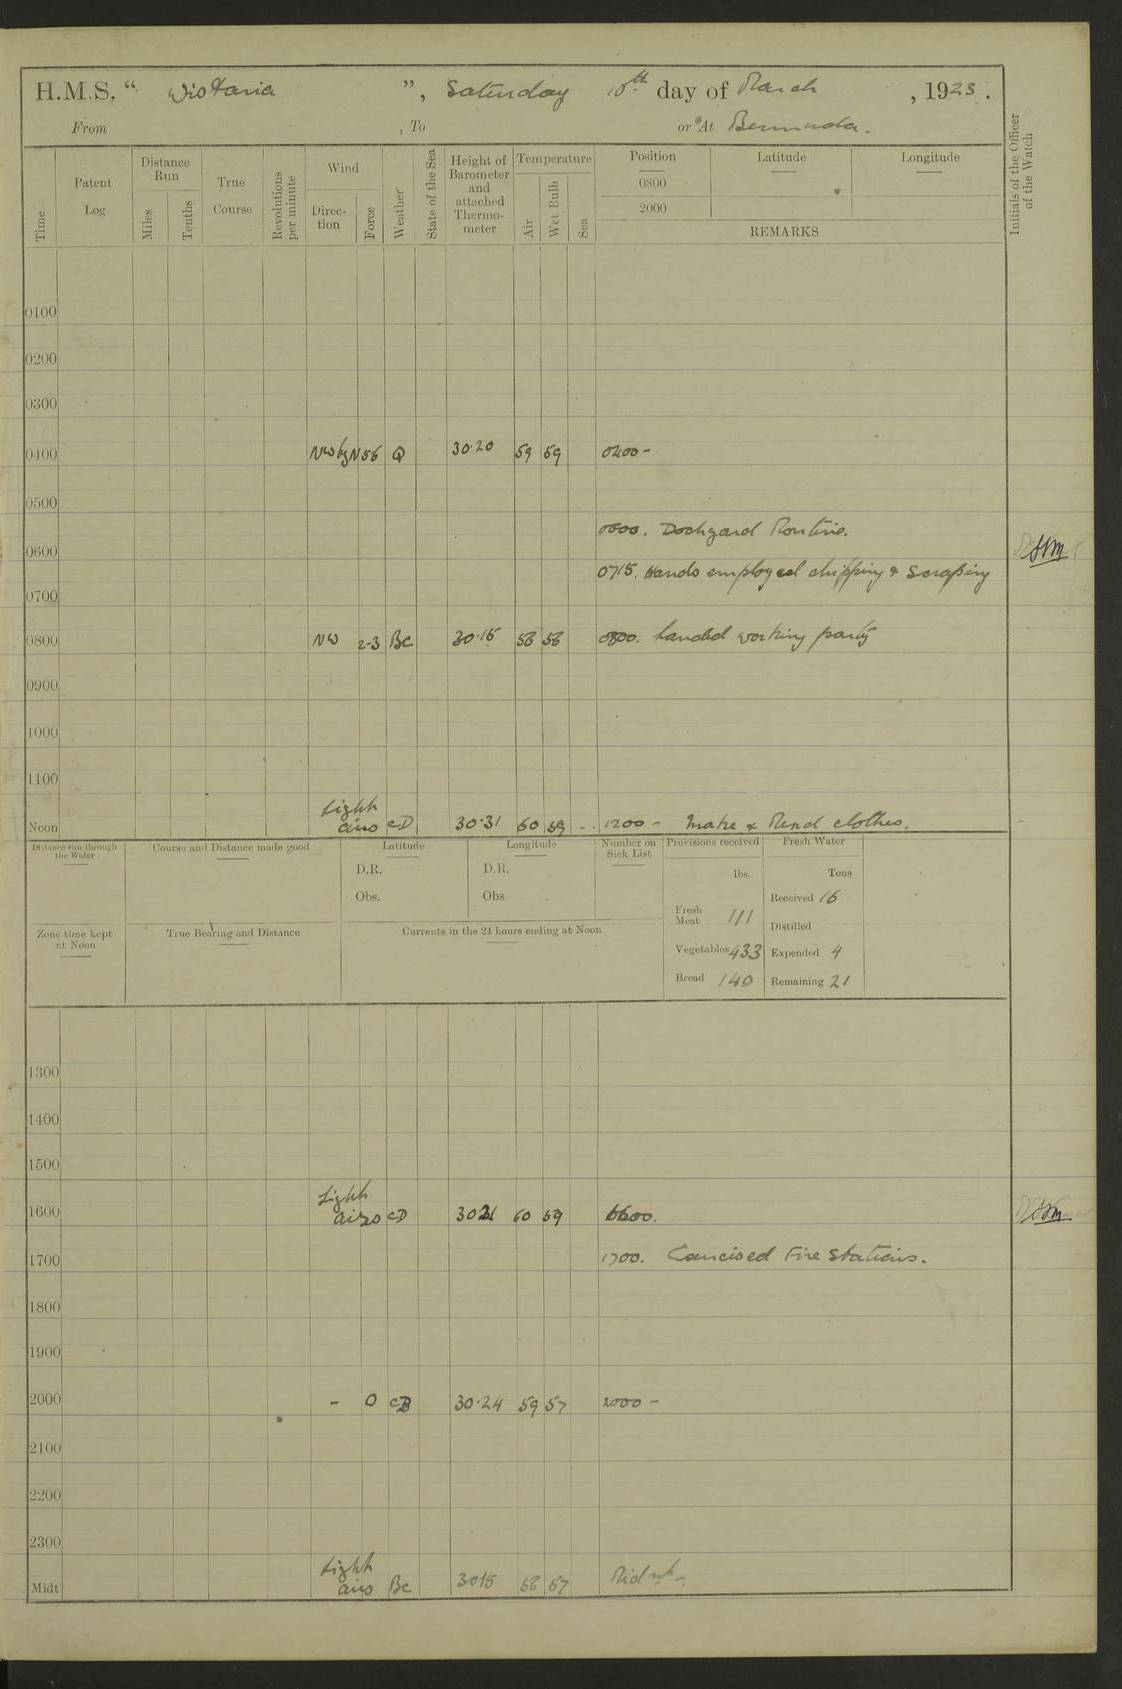 H.M.S. “ Wistaria ”, Saturday 10th day of March , 1923 .
From , To or At Bermuda.
Time
Patent Log
Distance Run
Miles
Tenths
True Course
Revolutions per minute
Wind
Direc-tion
Force
Weather
State of the Sea
Height of Barometer and attached Thermo-meter
Temperature
Air
Wet Bulb
Sea
Position Latitude Longitude
0800
2000
REMARKS
Initials of the Officer of the Watch
0100
0200
0300
0400 NW by N 56 Q 30.20 59 59 0400 -
0500
0600. Dockyard Routine.
0600
0715. Hands employed chipping & scraping
0700
0800 NW 2-3 BC 30.15 58 56 0800. Landed working party
0900
1000
1100
Noon Light airs CD 30.31 60 59 - . 1200 - Make & Mend clothes.
Distance run through the Water
Course and Distance made good
Latitude
D.R.
Obs.
Longitude
D.R.
Obs
Number on Sick List
Provisions received
lbs.
Fresh Meat 111
Vegetables 433
Bread 140
Fresh Water
Tons
Received 16
Distilled
Expended 4
Remaining 21
Zone time kept at Noon
True Bearing and Distance
Currents in the 24 hours ending at Noon
1300
1400
1500
1600 Light airs CD 60 59 1600.
1700. Exercised Fire Stations.
1700
1800
1900
2000 - 0 30.24 59 57 2000 -
2100
2200
2300
Midt Light airs BC 3015 57 Midnt -